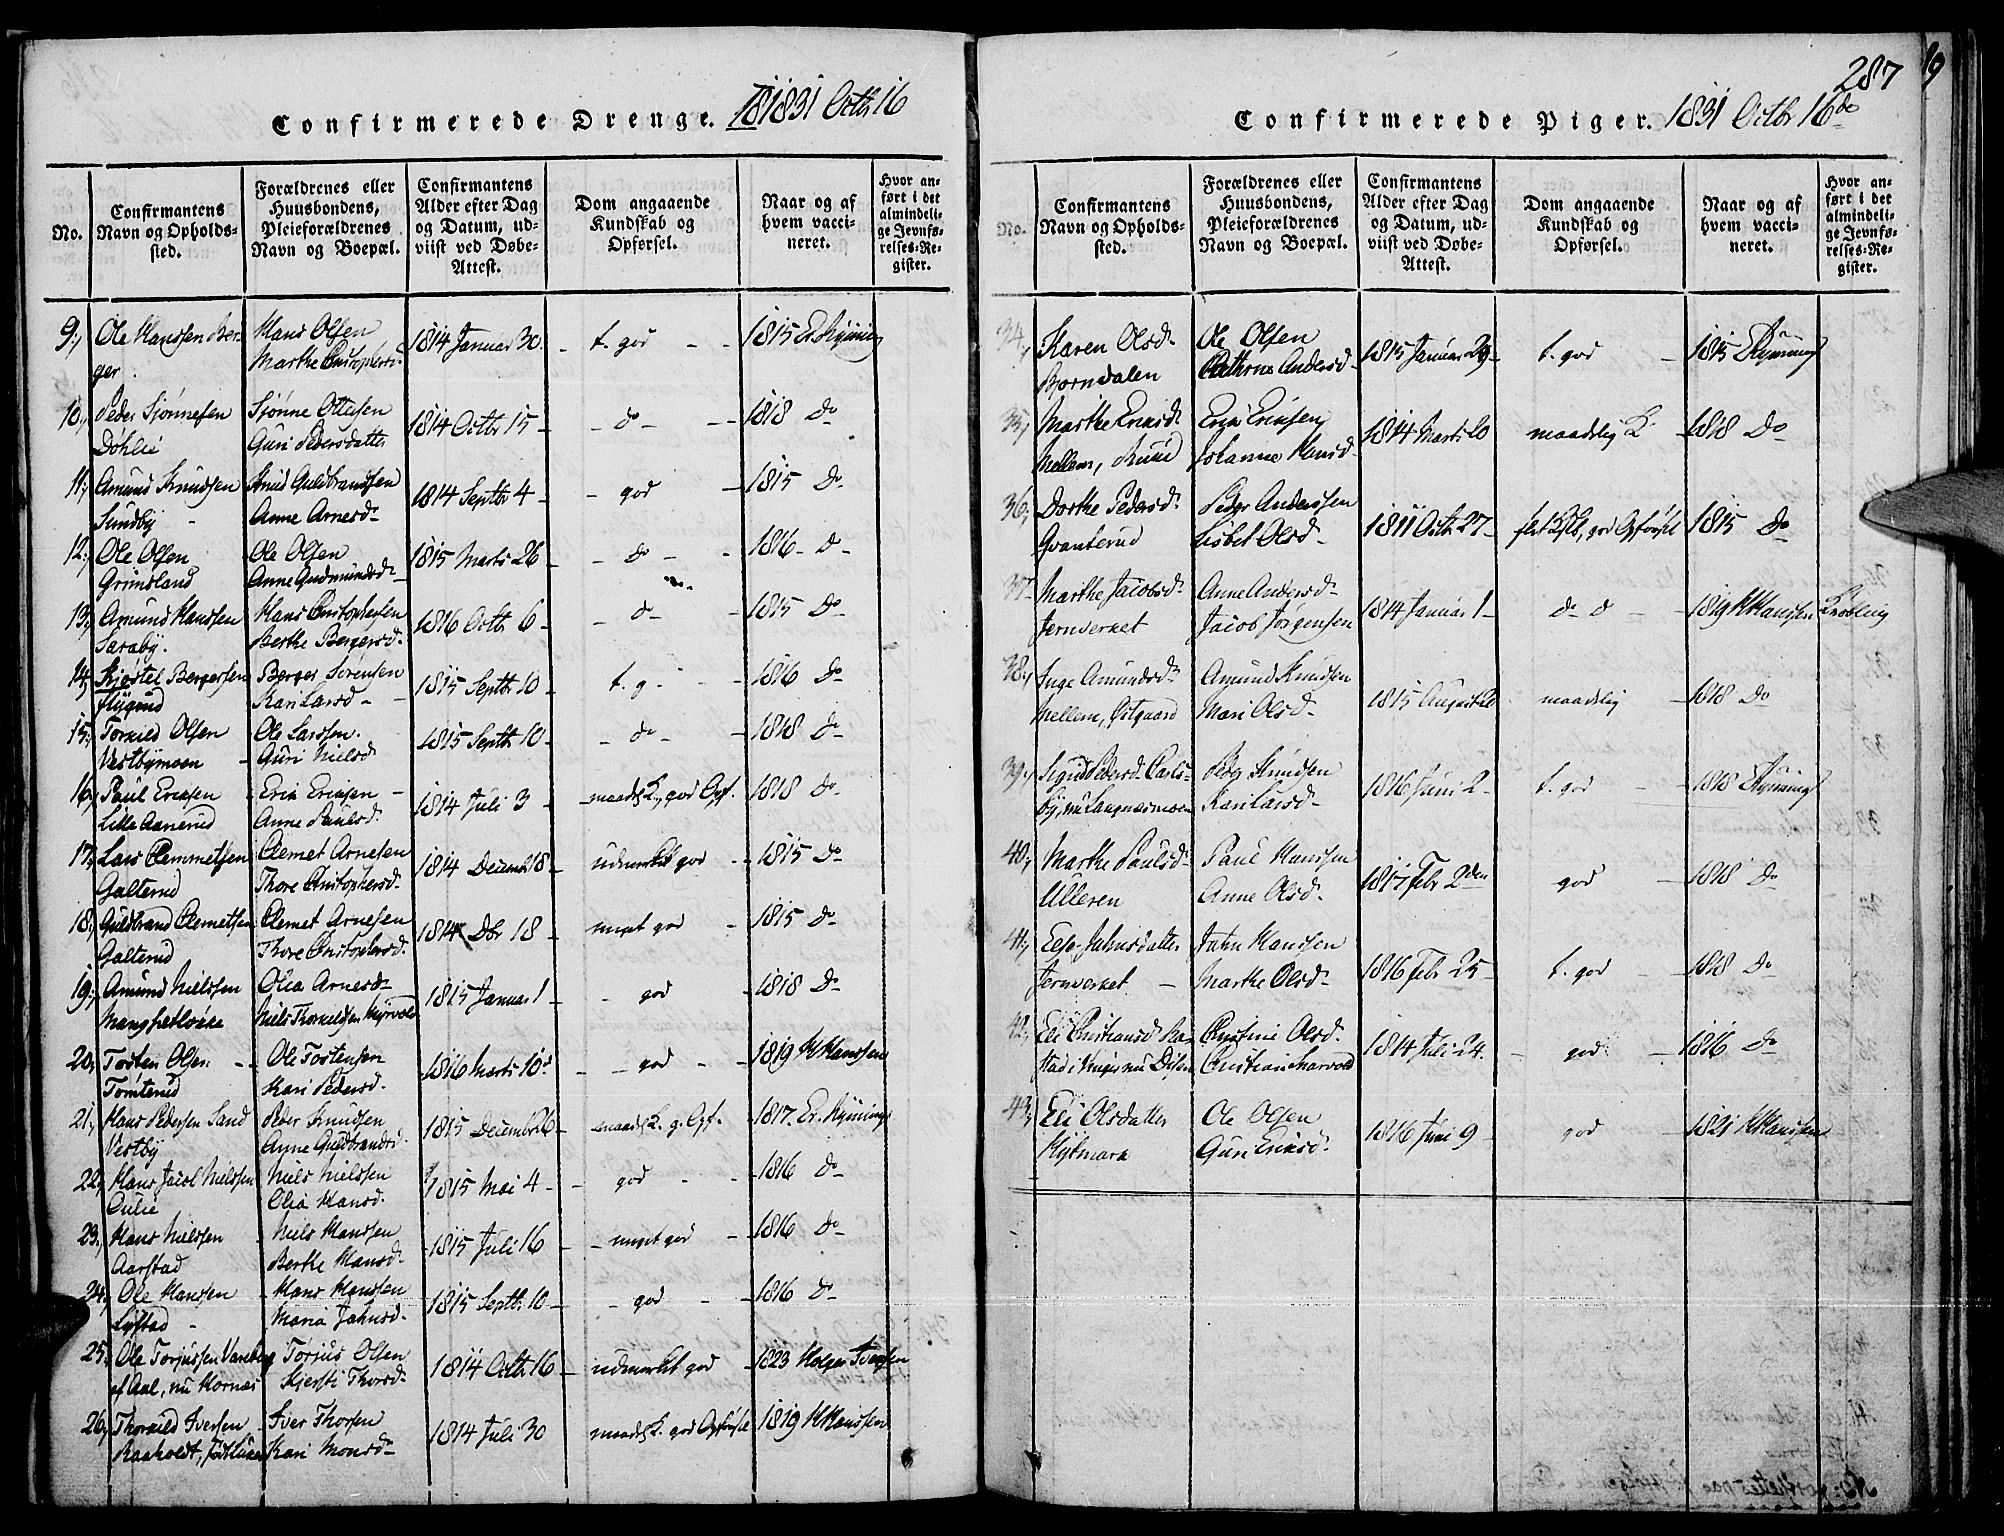 Confirmerede Drenge. 1831 Octbr 16
No.
Confirmantens Navn og Opholdssted.
Forældrenes eller Huusbondens, Pleieforældrenes Navn og Boepæl.
Confirmantens Alder efter Dag og Datum, udviist ved Døbe-Attest.
Dom angaaende Kundskab og Opførsel.
Naar og af hvem vaccineret.
Hvor anført i det almindelige Jevnførelses-Register.
9, Ole Hanssen Berger Hans Olsen 1814 Januar 30. t. god 1815 Er. Kynning
Marthe Christophersd.
10, Peder Sjønnesen Sjønne Ottesen 1814 Octbr 15 do 1818 Do
Døhlie Guri Pedersdatter
11, Amund Knudsen Knud Guldbrandsen 1814 Septbr 4 god 1815 Do
Sundby Anne Arnesd.
12, Ole Olsen Ole Olsen 1815 Marts 26 do 1816 Do
Grimsland Anne Gudmundsd.
13, Amund Hanssen Hans Christophersen 1816 Octbr 6 do 1815 Do
Saraby. Berthe Bergersd.
14, Kjøstel Bergersen Berger Sørensen 1815 Septbr 10 t. g. 1816 Do
Flygind Kari Larsd
15, Torkild Olsen Ole Larssen. 1815 Septbr 10 do 1818 Do
Vestbymoen Guri Nielsd
16, Paul Ericksen Erik Eriksen 1814 Juli 3 maadel. K., god Opf. 1818 Do
Lille Aanerud Anne Paulsd.
17, Lars Clemmetsen Clemet Arnesen 1814 Decembr 18 udmærket god 1815 Do
Galterud Thore Christophersd.
18, Guldbrand Clemetsen Clemet Arnesen 1814 Dbr 18 meget god 1815 Do
Galterud Thore Christophersd.
19, Amund Nielssen Olia Arnesd. 1815 Januar 1 god 1818 Do
Niels Thorkildsen Myrvold
20, Tosten Olsen Ole Tostensen 1816 Marts 10d god 1819 H Hanssen
Tomterud Kari Pedersd.
21, Hans Pedersen Sand Peder Knudsen 1815 Decembr 26 maadel. K. g. Opf. 1817. Er. Kynning
Vestby Anne Guldbrandsd.
22, Hans Jacob Nielssen Niels Nielssen 1815 Mai 4 god 1816 Do
Julie Olia Hansd.
23, Hans Nielssen Niels Hanssen 1815 Juli 16 meget god 1816 Do
Aarstad Berthe Hansd.
24, Ole Hanssen Hans Hanssen 1815 Septbr 10 god 1816 Do
Lystad Maria Jahnsd.
25, Ole Torjussen Torjus Olsen 1814 Octbr 16 udmærket god 1823 Holger Iversen
af Aal, nu Hornæs Kjersti Thorsd.
26, Thorkild Iversen Iver Thorsen 1814 Juli 30 maadel. K. god Opførsel 1819 H Hanssen
Raaholdt, Kari Monsd.
287
19
Confirmerede Piger. 1831 Octbr 16de
No.
Confirmantens Navn og Opholdssted.
Forældrenes eller Huusbondens, Pleieforældrenes Navn og Boepæl.
Confirmantens Alder efter Dag og Datum, udviist ved Døbe-Attest.
Dom angaaende Kundskab og Opførsel.
Naar og af hvem vaccineret.
Hvor anført i det almindelige Jevnførelses-Register.
34, Karen Olsd. Ole Olsen 1815 Januar 29 t. god 1815 Kynning
Bjorndalen Cathrine Andersd.
35, Marthe Eriksd. Erik Eriksen 1814 Marts 20 maadelig K. 1818 Do
Mellem, Ruud Johanne Hansd.
36, Dorthe Pedersd. Peder Anderssen 1811 Octbr 27 god Opførsel 1815 Do
Granterud Lisbet Olsd.
37, Marthe Jacobsd. Anne Andersd. 1814 Januar 1 do d 1819 H Hanssen
Jernverket Jacob Jørgensen
38, Inge Amundsd. Amund Knudsen 1815 August 20 maadelig 1818 Do
Mellem, Østgaard Mari Olsd.
39, Sigrid Pedersd. Carlsby, nu Langnæsmoen Peder Knudsen 1816 Juni 2 t. god 1818 Kynning
Kari Larsd.
40, Marthe Paulsd. Paul Hanssen 1815 Febr 2den god 1818 Do
Ulleren Anne Olsd.
41, Jahnsdatter Jahn Hanssen 1816 Febr 25 t. god 1818 Do
Jernverket Marthe Olsd.
42, Eli Christiansd. Christine Olsd. 1814 Juli 24. god 1816 Do
Christian Skarvold
43, Eli Olsdatter Ole Olsen 1816 Juni 9 god 1821 H Hanssen
Guri Eriksd.